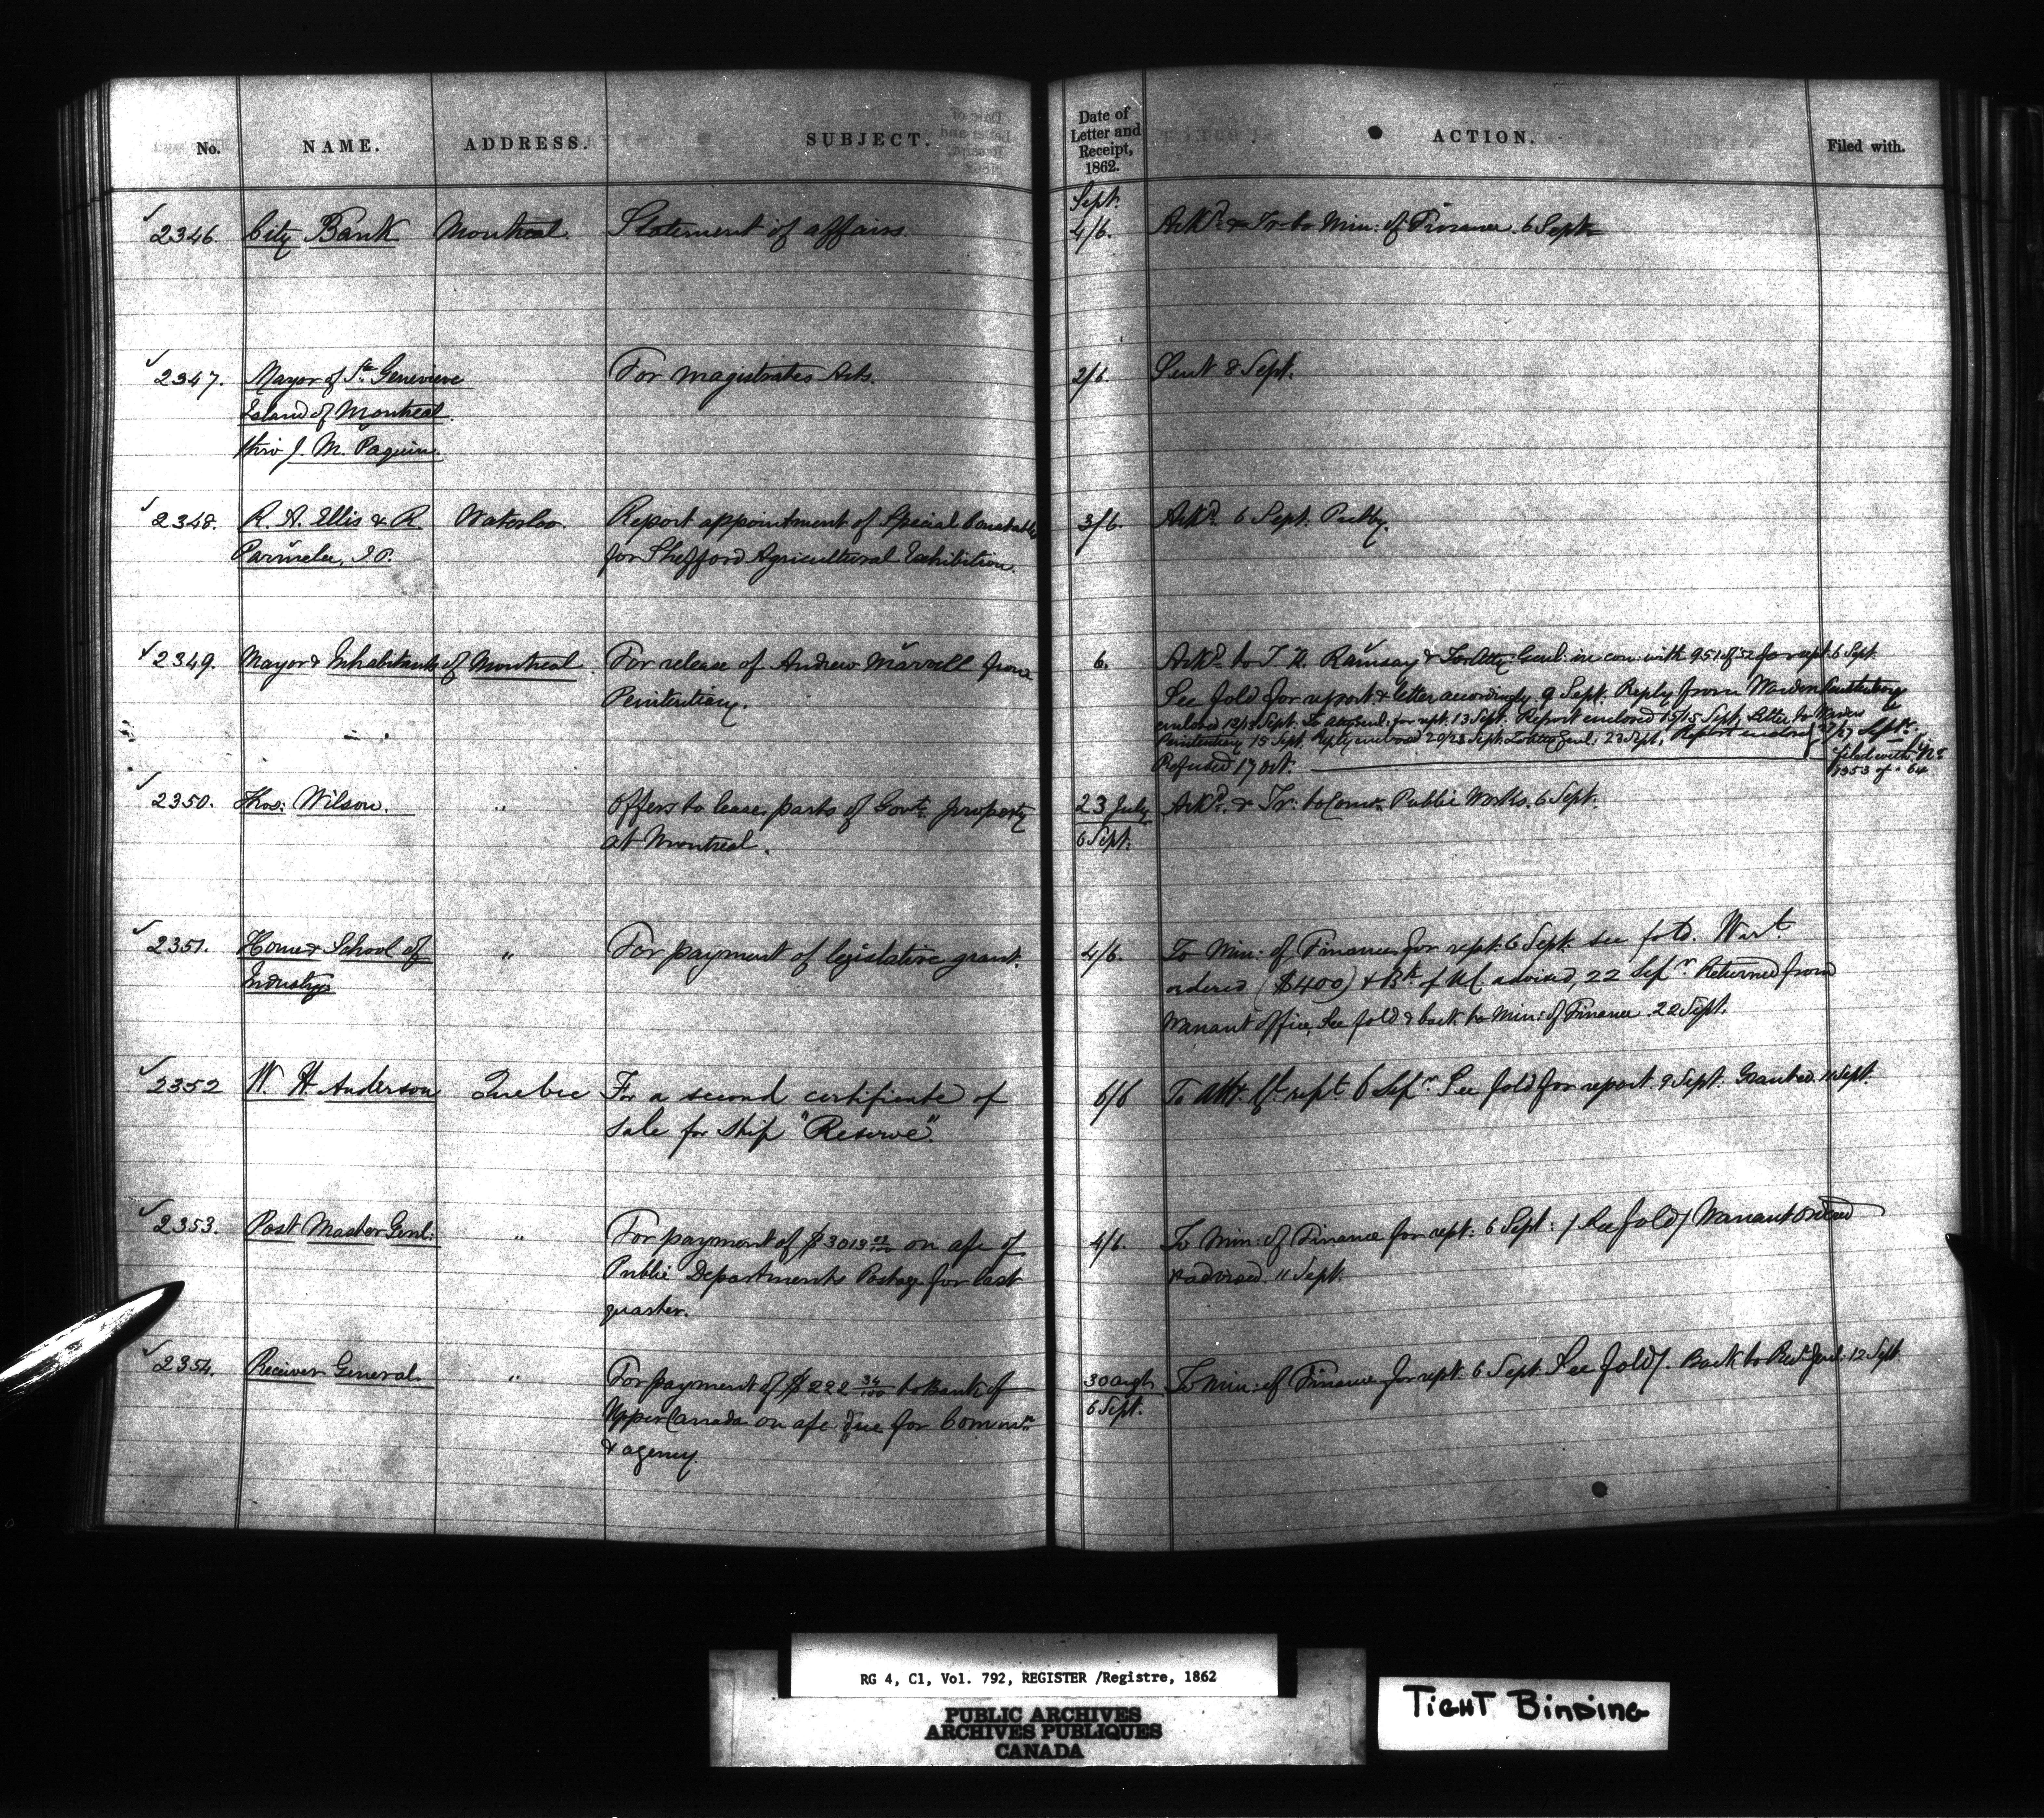 No. NAME. ADDRESS. SUBJECT. Date of Letter and Receipt, 1862. ACTION. Filed with.
Sept.
2346. City Bank Montreal. Statement of affairs. 4/6. Ackd. & Tr. to Min: of Finance. 6 Sept.
2347. Mayor of Ste Genevieve For magistrates Acts. 2/6. Sent 8 Sept.
Island of Montreal.
thro' J. M. Paquin.
2348. R. A. Ellis & R. Waterloo Report appointment of Special Constables 3/6. Ackd. 6 Sept.
Parmelee, J.P. for Shefford Agricultural Exhibition.
2349. Mayor & Inhabitants of Montreal. For release of Andrew Marvell from 6. Ackd. to T. K. Ramsay & To Atty: Genl: in con: with 951 of 52 for rept: 6 Sept.
Penitentiary. See fold for report & letter accordingly 9 Sept. Reply from Warden Penitentiary
enclosed 12/13 Sept. To Atty Genl: for rept. 13 Sept. Report enclosed 15/15 Sept. Letter to Warden
Penitentiary 15 Sept. Reply enclosed 20/23 Sept. To Atty Genl: 23 Sept. Report enclosed 27/27 Sept.
Refused 17 Oct. filed with No
1353 of 64
2350. Thos: Wilson. " Offers to lease parts of Govt: property 23 July Ackd. & Tr: to Comr. Public Works. 6 Sept.
at Montreal. 6 Sept.
2351. Home & School of " For payment of legislative grant. 4/6. To Min: of Finance for rept: 6 Sept. see fold. Wart.
Industry ordered ($400) & Bk. of U.C. advised, 22 Sepr. Returned from
Warrant office, See fold & back to Min: of Finance. 22 Sept.
2352 W. H. Anderson Quebec For a second certificate of 6/6 To Att. Gl. rept 6 Sepr. See fold for report 9 Sept. Granted. 11 Sept.
sale for ship "Reserve".
2353. Post Master Genl: " For payment of $3013 on a/c of 4/6. To Min: of Finance for rept: 6 Sept: / See fold / Warrant ordered
Public Departments Postage for last & advised. 11 Sept.
quarter.
2354. Receiver General. " For payment of $222 34/100 to Bank of 30 Augt. To Min: of Finance for rept. 6 Sept. See fold /. Back to Recr. Genl: 12 Sept
Upper Canada on a/c due for Commn. 6 Sept.
& agency.
RG 4, C1, Vol. 792, REGISTER /Registre, 1862
PUBLIC ARCHIVES
ARCHIVES PUBLIQUES
CANADA
TIGHT BINDING